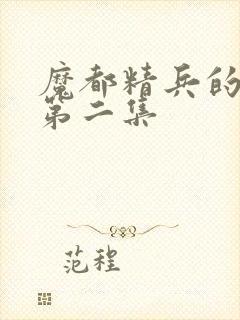 魔都精兵的
第二集
范程